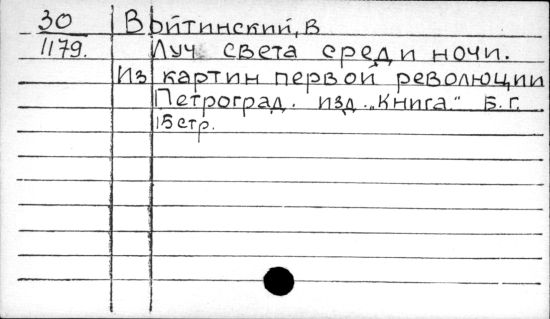 30 Войтинский, В
1179. Луч света среди ночи.
Из картин первой революции
Петроград. изд. „Книга." Б. г.
15 стр.